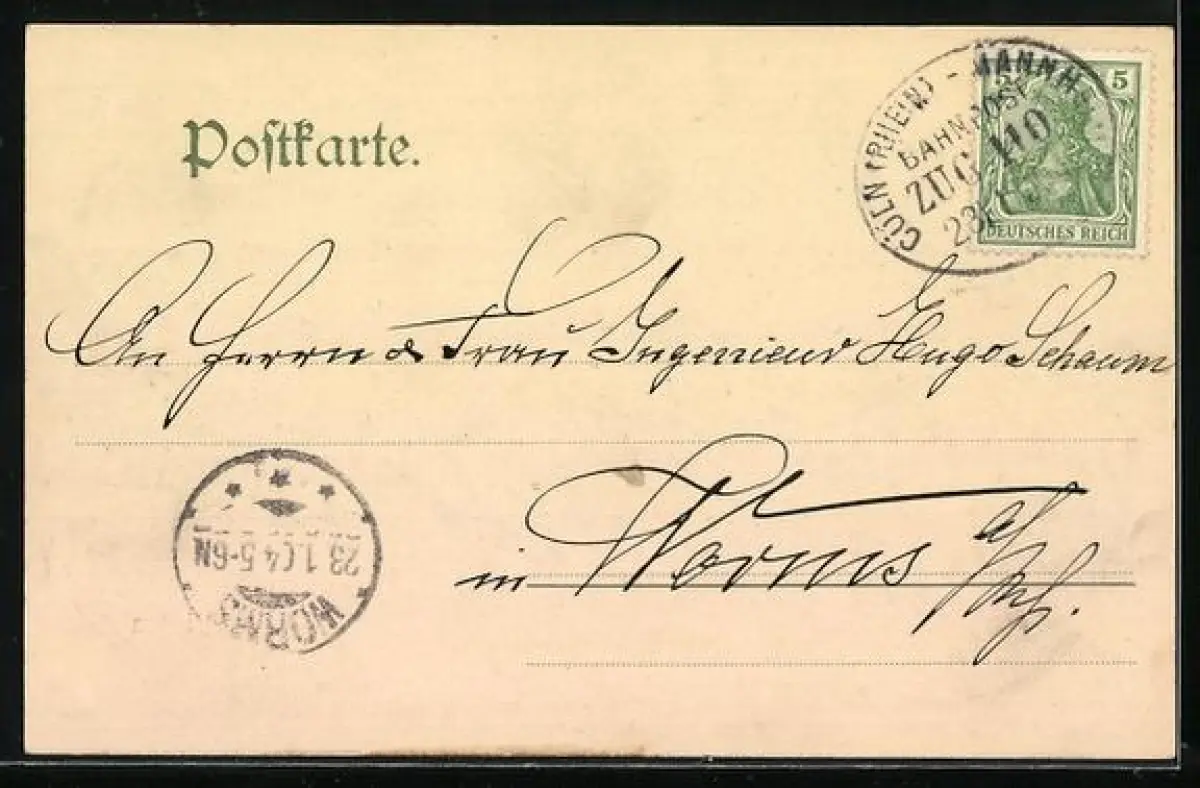 Postkarte.
CÖLN (RHEIN) - MANNH
BAHNPOST
ZUG 110
23
5
DEUTSCHES REICH
An Herrn & Frau Ingenieur Hugo Schaum
in Worms a/Rh.
WORMS
23.1.04 5-6N